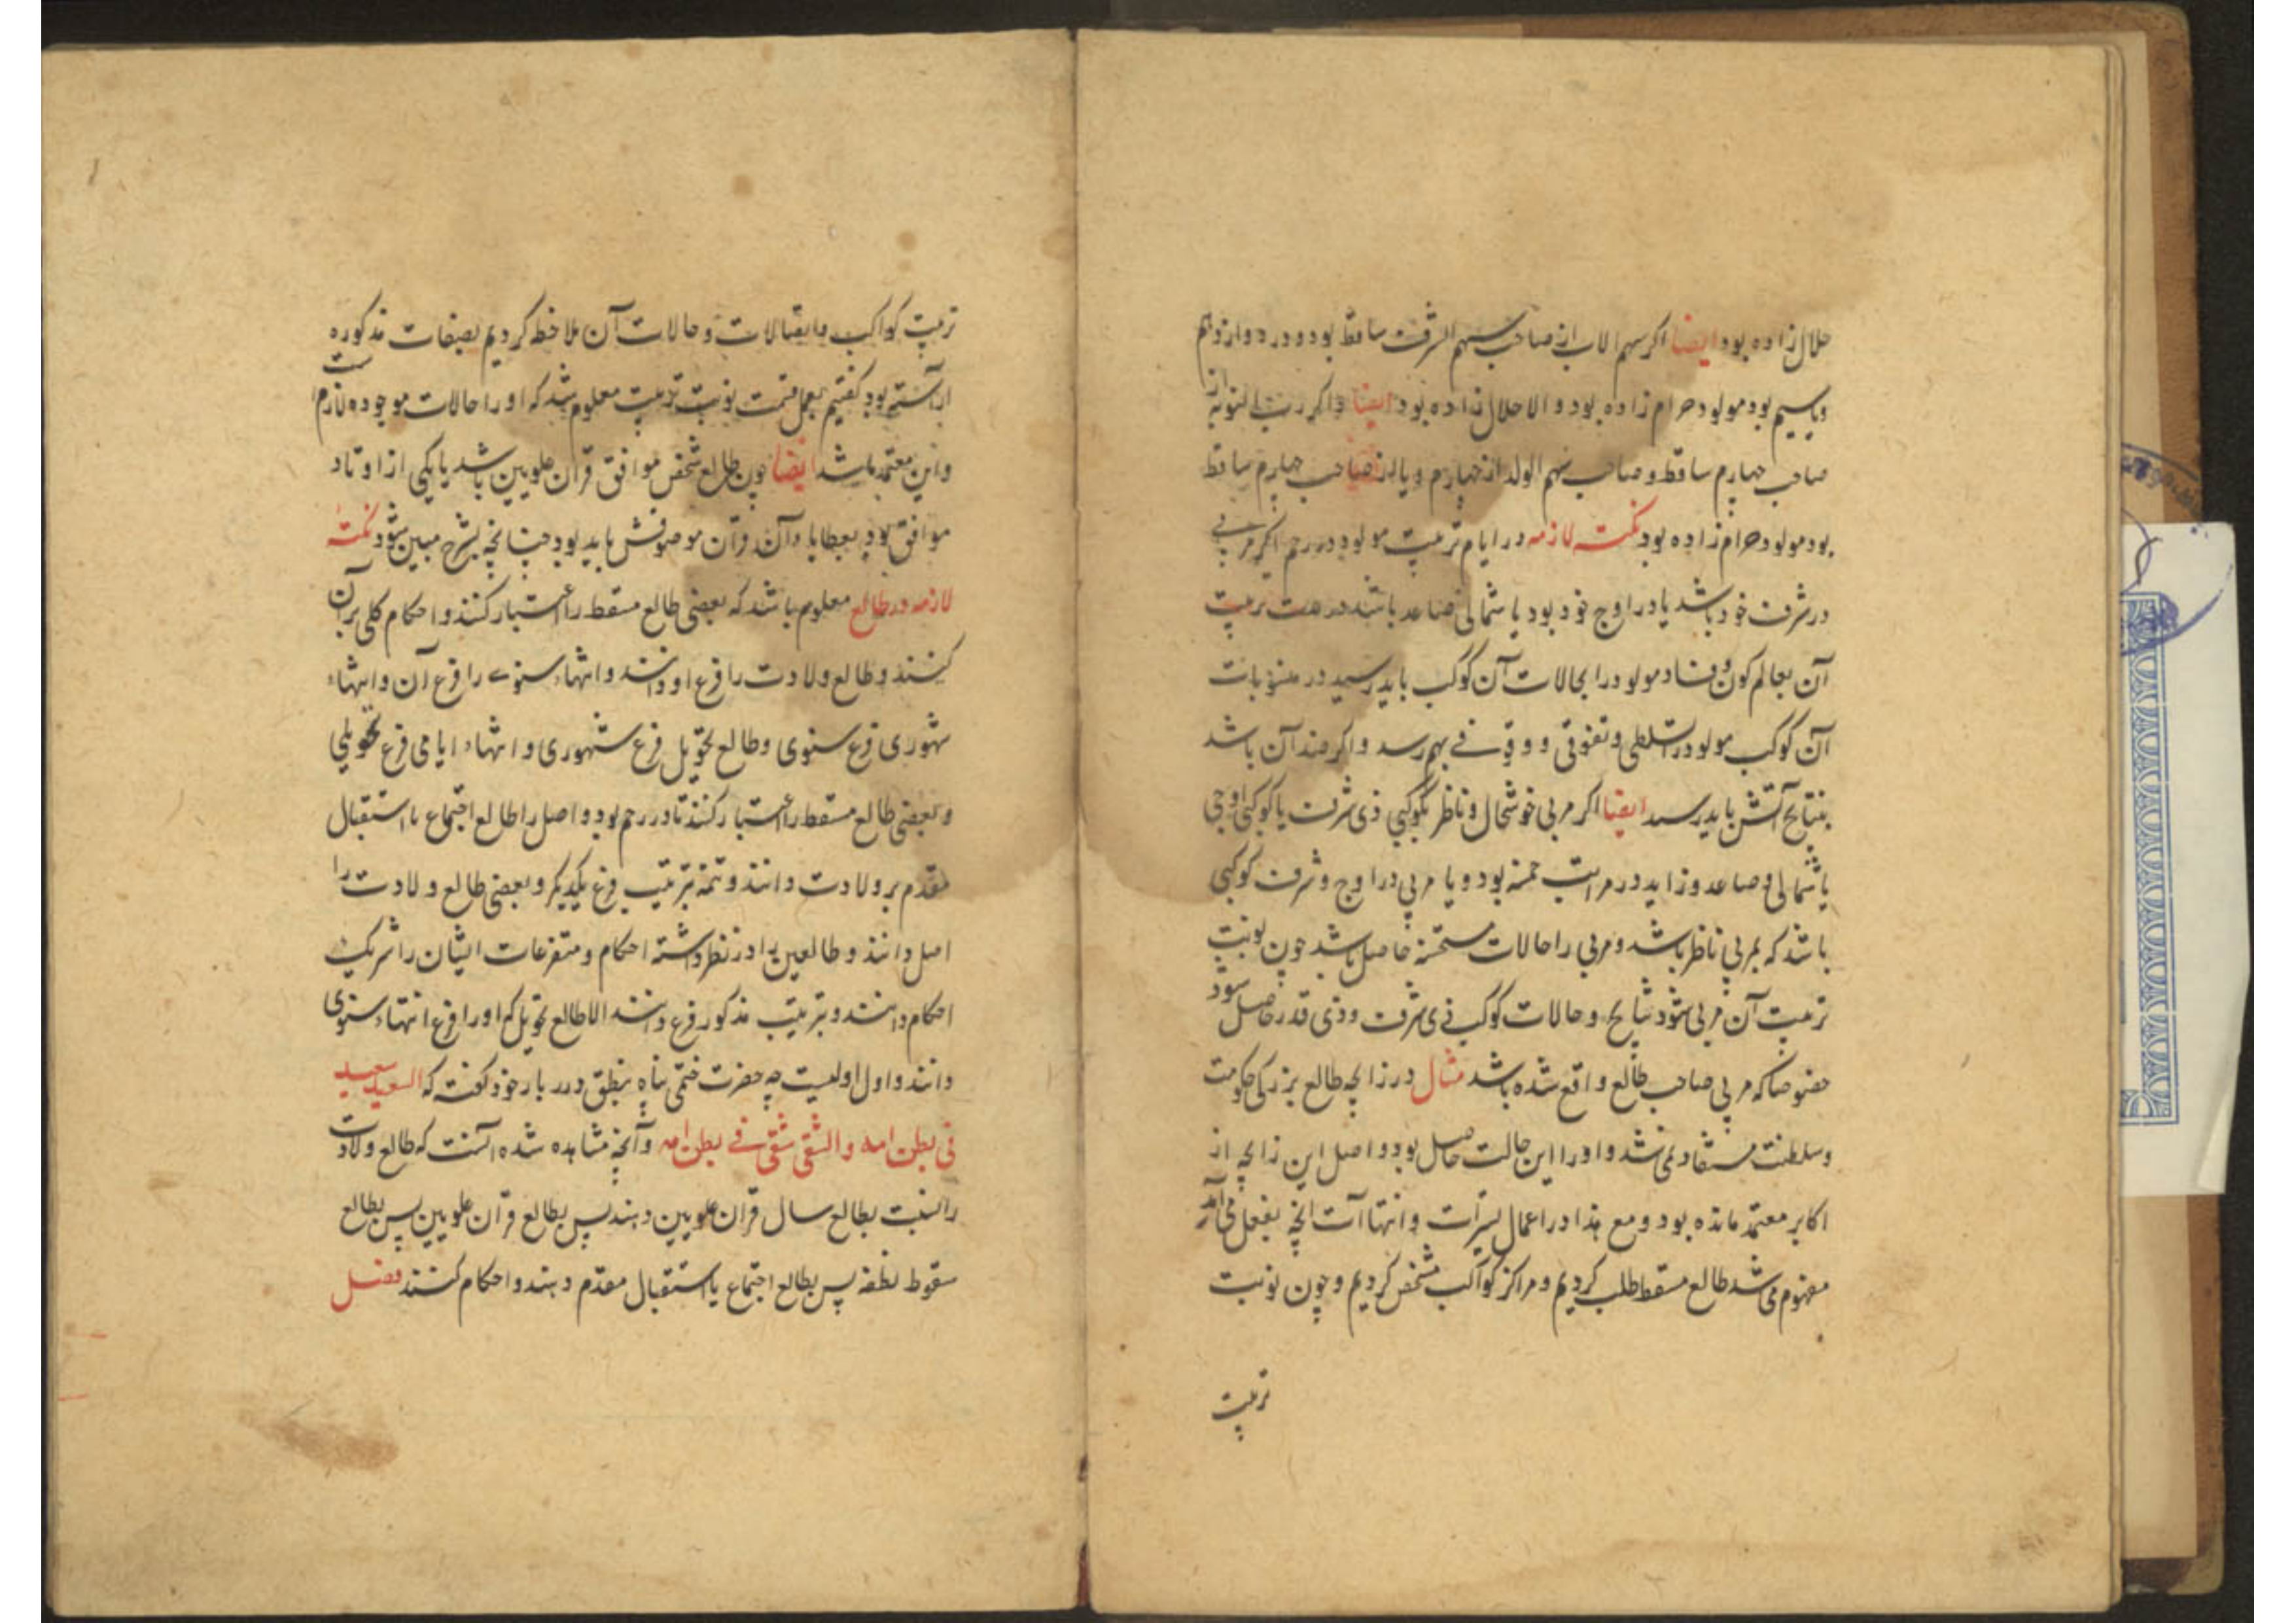 حلال زاده بود ایضا اکر سهم الاب از صاحب سهم الشرف ساقط بود و در دوازدهم
ویا سیم بود مولود حرام زاده بود و الا حلال زاده بود ایضا و اکر رب النوبه از
صاحب چهارم ساقط و صاحب سهم الولد از چهارم ویا از صاحب چهارم ساقط
بود مولود حرام زاده بود نکته لازمه در ایام تربیت مولود در رحم اکر مربی
در شرف خود باشد یا در اوج خود بود یا شمالی صاعد باشد در مدت تربیت
آن بعالم کون و فساد مولود را بحالات آن کوکب باید رسید در منسوبات
آن کوکب مولود را تسلطی و تفوقی و وقوفی بهم رسد و اکر ضد آن باشد
بنتایج آتش باید رسید ایضا اکر مربی خوشحال و ناظر بکوکبی ذی شرف یا کوکبی اوجی
یا شمالی و صاعد و زاید در مراتب خمسه بود و یا مربی در اوج و شرف کوکبی
باشد که بمربی ناظر باشد و مربی را حالات مستحسنه حاصل باشد چون نوبت
تربیت آن مربی شود نتایج و حالات کوکب ذی شرف و ذی قدر حاصل شود
خصوصا که مربی صاحب طالع واقع شده باشد مثال در زایجه طالع بزرکی حکومت
و سلطنت مستفاد نمی شد و او را این حالت حاصل بود و اصل این زایجه از
اکابر معتمد مانده بود و مع هذا در اعمال تسیرات و انتهاآت انچه بفعل می آمد
مفهوم می شد طالع مسقط طلب کردیم و مراکز کواکب مشخص کردیم و چون نوبت
تربیت
تربیت کواکب و اتصالات و حالات آن ملاحظه کردیم بصفات مذکوره
آراسته بود کفتیم بعمل قسمت نوبت تربیت معلوم شد که او را حالات موجوده لازم است
و این معتمد باشد ایضا چون طالع شخص موافق قران علویین باشد یا یکی از اوتاد
موافق بود بعطایا و آن قران موصوفش باید بود چنانچه بشرح مبین شود نکته
لازمه در طالع معلوم باشد که بعضی طالع مسقط را اعتبار کنند و احکام کلی بر آن
کنند و طالع ولادت را فرع او دانند و انتهاء سنوی را فرع آن و انتهاء
شهوری فرع سنوی و طالع تحویل فرع شهوری و انتهاء ایامی فرع تحویلی
و بعضی طالع مسقط را اعتبار کنند تا در رحم بود و اصل را طالع اجتماع یا استقبال
مقدم بر ولادت دانند و تتمه بترتیب فرع یکدیکر و بعضی طالع ولادت را
اصل دانند و طالعین را در نظر داشته احکام و متفرعات ایشان را شریک
احکام دانند و بترتیب مذکور فرع دانند الا طالع تحویل که او را فرع انتهاء سنوی
دانند و اول اولیست چه حضرت ختمی پناه بنطق درر بار خود کفته که السعید سعید
فی بطن امه و الشقی شقی فی بطن امه و آنچه مشاهده شده آنست که طالع ولادت
را نسبت بطالع سال قران علویین دهند پس بطالع قران علویین پس بطالع
سقوط نطفه پس بطالع اجتماع یا استقبال مقدم دهند و احکام کنند فصل